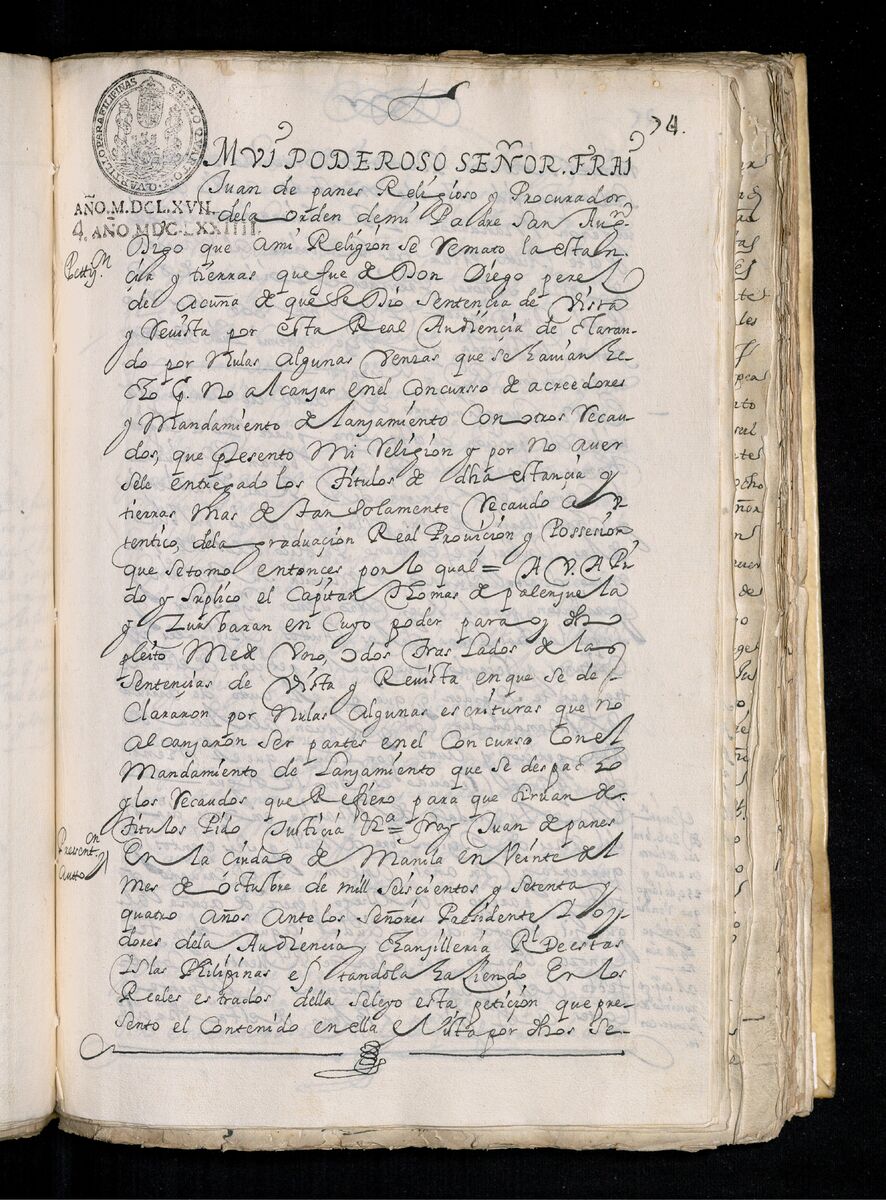 74.
SELLO QUARTO VN QVARTILLO PARA FILIPINAS
AÑO.M.DCLXVII.
4. AÑO MDCLXXIIII.
MVI PODEROSO SEÑOR. FRAI
Juan de panes Religioso y Procurador
dela orden demi Padre San Augn.
Digo que ami Religion se Remato la estan-
cia y tierras que fue de Don Diego perez
Pettn.
de Acuña de que se Dio sentencia de Vista
y Revista por esta Real Audiencia declaran-
do por Nulas Algunas Ventas que se havian he-
cho q. No alcanzar enel Concurso de acreedores
y Mandamiento de lanzamiento Con otros Recau-
dos, que Presento Mi Religion y por No aver
sele entregado los Titulos de dha estancia y
tierras Mas de tan solamente Recaudo Au-
tentico, dela graduacion Real Provicion y Possesion
que setomo entonces por lo qual = A V. A Pi-
do y suplico el Capitan Thomas de palenzuela
y Zurbaran en Cuyo poder para dho
pleito Me de Vno, o dos Traslados de las
sentencias de Vista y Revista en que se de-
Clararon por Nulas Algunas escrituras que no
Alcanzaron ser partes enel Concurso Conel
Mandamiento de Lanzamiento que se despacho
y los Recaudos que Refiero para que sirvan de
Titulos Pido Justicia &ra = fray Juan de panes
Presentn.
Autto
En la Ciudad de Manila en Veinte del
Mes de octubre de mill seiscientos y setenta y
quatro Años Ante los señores Presidente e oy-
dores dela Audiencia y Chanzilleria Rl De estas
Islas Philipinas estandola haziendo En los
Reales estrados della seleyo esta peticion que pre-
sento el Contenido en ella e Vista por dhos se-